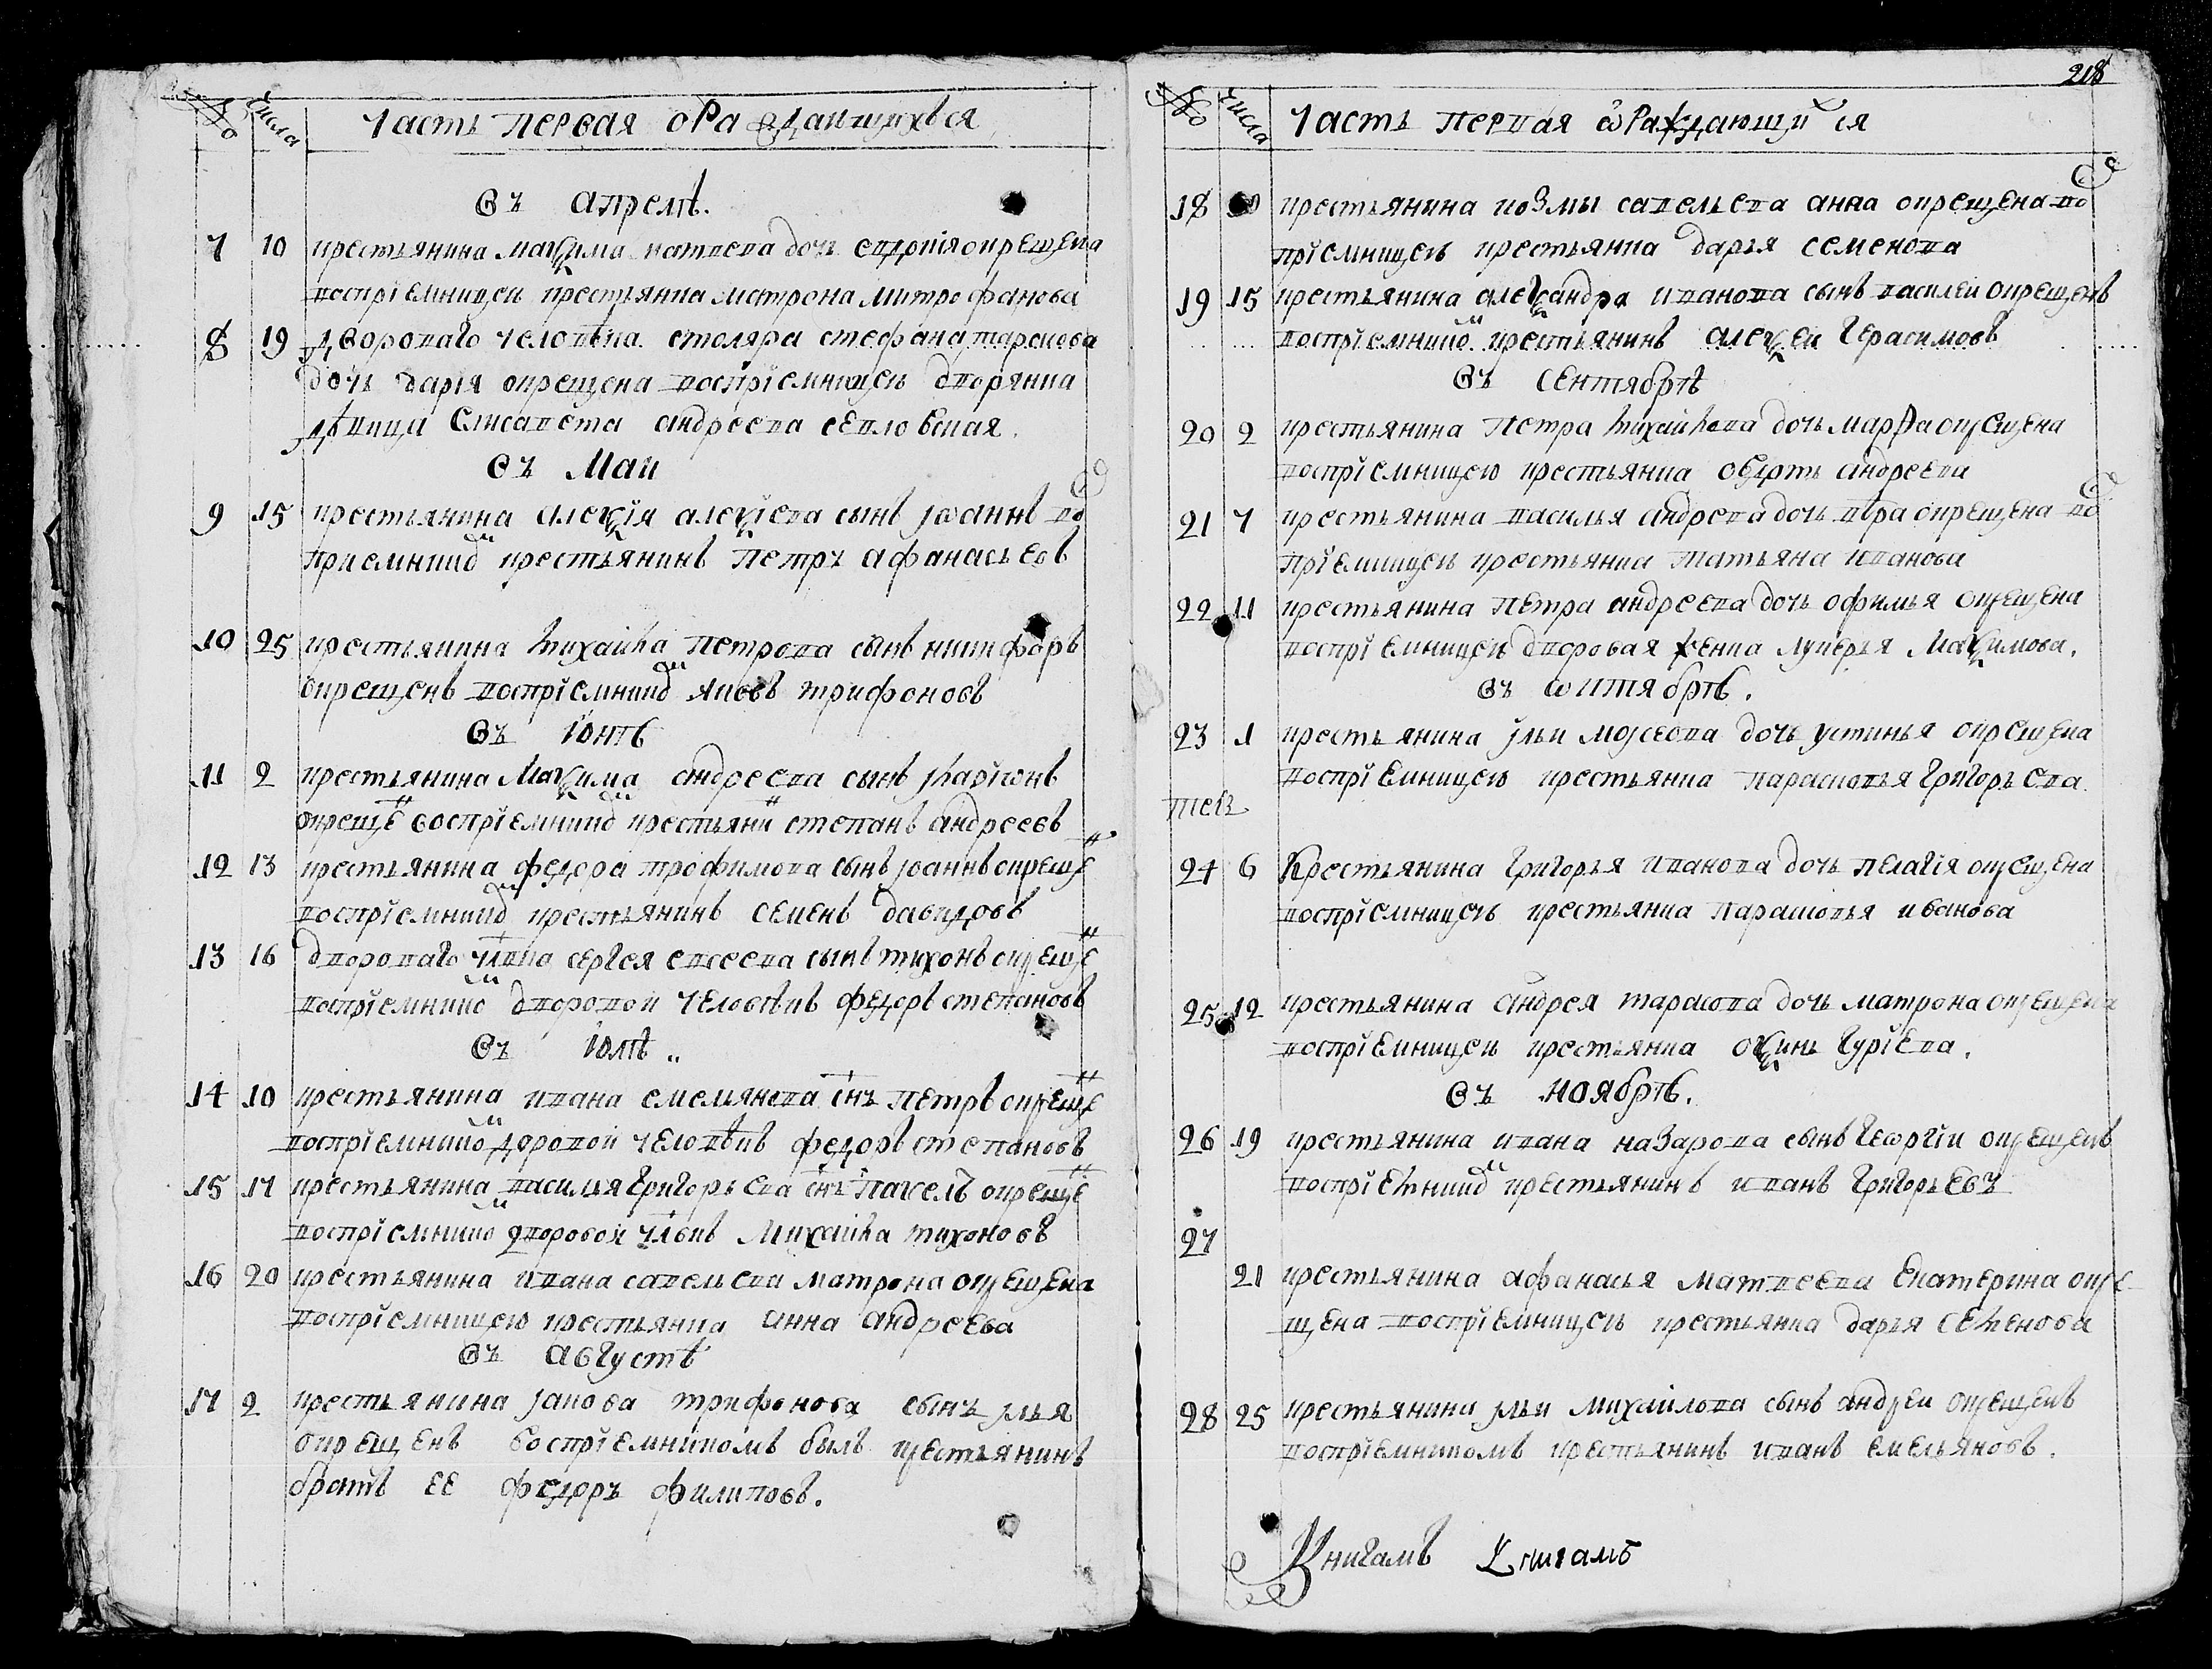 № числа Часть первая о Раждающихъся
Въ апрелѣ.
7 10 крестьянина маѯима матвева дочь евдокія окрещена
воспріемницею крестьянка матрона митрофанова
8 19 двороваго человѣка столяра стефана тарасова
дочь дарія окрещена воспріемницею дворянка
дѣвица елисавета андреева
Въ Маи
9 15 крестьянина алеѯія алеѯіева сынъ іоаннъ вос
приемникомъ крестьянинъ Петръ афанасьевъ
10 25 крестьянина михаила Петрова сынъ никифоръ
окрещенъ воспріемникомъ яковъ трифоновъ
Въ іюнѣ
11 2 крестьянина Маѯима андреева сынъ іларіѡнъ
окрещенъ воспріемникомъ крестьянинъ степанъ андреевъ
12 13 крестьянина федора трофимова сынъ іоаннъ окрещенъ
воспріемникомъ крестьянинъ семенъ давидовъ
13 16 двороваго члвка сергея евсеева сынъ тихонъ окрещенъ
воспріемникомъ дворовой человѣкъ федоръ степановъ
Въ іюлѣ
14 10 крестьянина ивана емемянова снъ Петръ окрещенъ
воспріемникомъ дворовой человѣкъ федоръ степановъ
15 17 крестьянина василья григорьева снъ Павелъ окрещенъ
воспріемникомъ дворовой члвкъ Михайла тихоновъ
16 20 крестьянина ивана савельева матрона окрещена
воспріемницею крестьянка анна андреева
Въ августѣ
17 2 крестьянина іакова трифонова сынъ ілья
окрещенъ воспріемникомъ былъ крестьянинъ
братъ ее федоръ филиповъ.
218
№ числа Часть первая ѡ Раждающихся
18 крестьянина козмы савельева анна окрещена вос
пріемницею крестьянка дарья семенова
19 15 крестьянина алеѯандра иванова сынъ василеи окрещенъ
воспріемникомъ крестьянинъ алеѯеи герасимовъ
Въ сентябрѣ
20 2 крестьянина Петра михаилева дочь марѳа окрещена
воспріемницею крестьянка овдоть андреева
21 7 крестьянина василья андрева дочь вѣра окрещена вос
пріемницею крестьянка татьяна иванова
22 11 крестьянина Петра андреева дочь офимья окрещена
воспріемницею дворовая женка лукерья Маѯимова.
Въ ѡктябрѣ.
23 1 крестьянина ільи моісеова дочь устинья окрещена
воспріемницею крестьянка парасковья григорьева
24 6 Крестьянина григорья иванова дочь пелагія окрещена
воспріемницею крестьянка парасковья иванова
25 12 крестьянина андрея тарасова дочь матрона окрещена
воспріемницею крестьянка оѯинь гуріева.
Въ ноябрѣ.
26 19 крестьянина ивана назарова сынъ геѡргіи окрещенъ
воспріемникомъ крестьянинъ иванъ григорьевъ
27
21 крестьянина афанасья матвеева екатерина окре
щена воспріемницею крестьянка дарья семенова
28 25 крестьянина ільи михаилова сынъ андреи окрещенъ
воспріемникомъ крестьянинъ иванъ емельяновъ.
Книгамъ Книгамъ